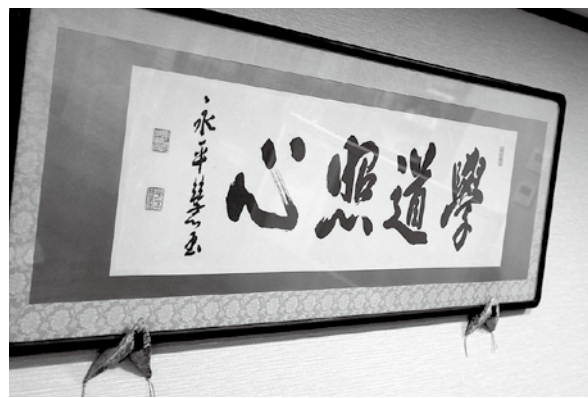 學道照心
永平慧玉